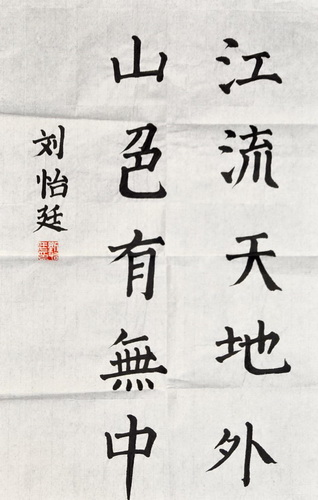 江流天地外
山色有無中
刘怡廷